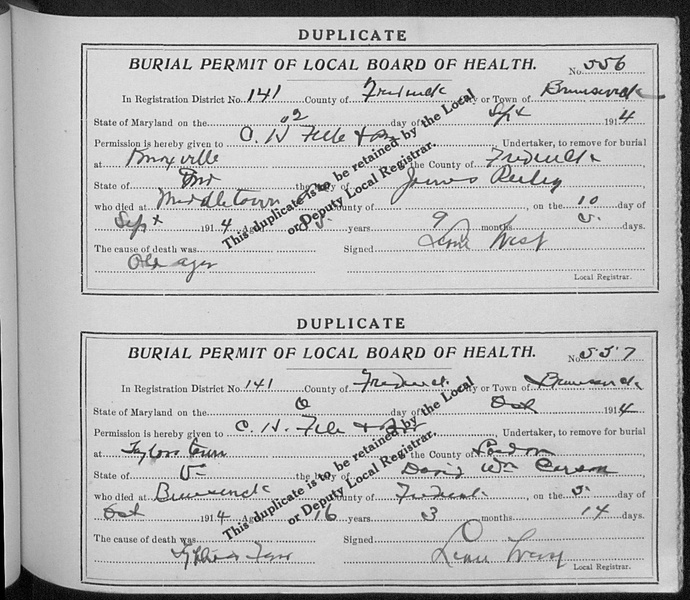 DUPLICATE
BURIAL PERMIT OF LOCAL BOARD OF HEALTH.
No. 556
In Registration District No. 141 County of Frederick City or Town of Brunswick
State of Maryland on the day of Sept 1914
Permission is hereby given to C. H. Undertaker, to remove for burial
at Knoxville the County of Frederick
State of Md the body of James
who died at Middletown County of , on the 10 day of
Sept 1914 Aged years 9 months 5 days.
The cause of death was Signed
Old age
Local Registrar.
This duplicate is to be retained by the Local
or Deputy Local Registrar.
DUPLICATE
BURIAL PERMIT OF LOCAL BOARD OF HEALTH.
No. 557
In Registration District No. 141 County of Frederick City or Town of Brunswick
State of Maryland on the 6 day of Oct 1914
Permission is hereby given to C. H. Undertaker, to remove for burial
at Taylorstown the County of Loudon
State of Va the body of David Wm Carson
who died at Brunswick County of Frederick , on the 5 day of
Oct 1914 Aged 16 years 3 months 14 days.
The cause of death was Signed
Local Registrar.
This duplicate is to be retained by the Local
or Deputy Local Registrar.